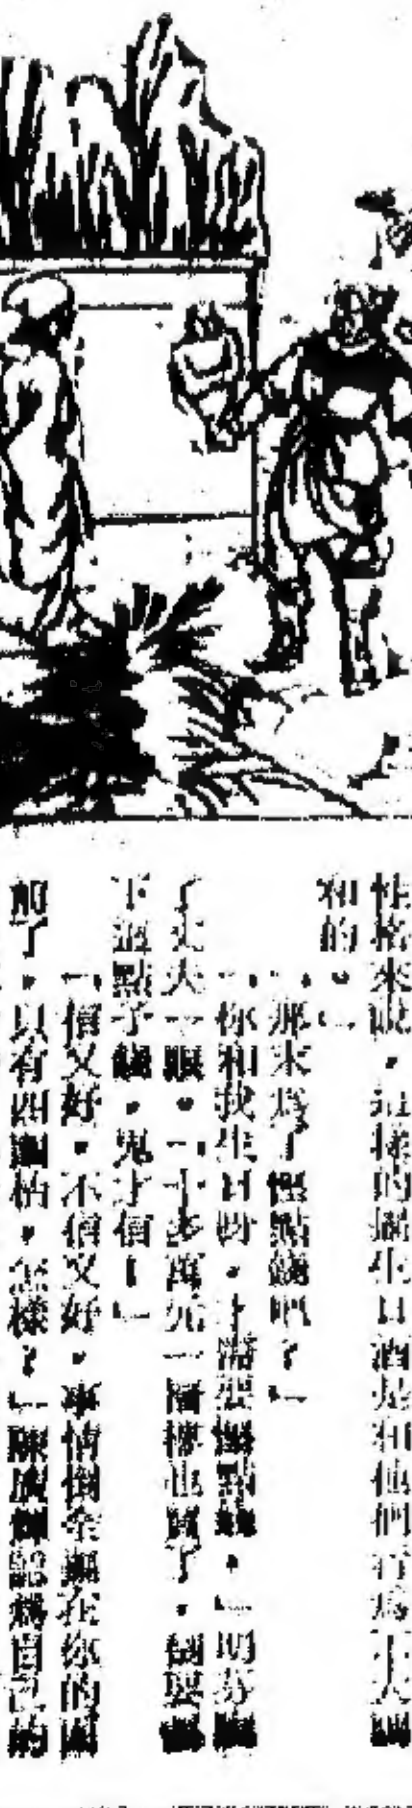 性格來說，這樣的擺生日酒是和他們行為不大調
和的。」
「那末為了慳點錢吧？」
「你和我生日時，才需要慳點錢，」明芬
了丈夫一眼。「十多萬元一層樓也買了，倒要
下這點子錢，鬼才信！」
「信又好，不信又好，事情倒全擺在你的面
前了，只有四圍枱，怎樣？」陳廣輝認為自己的